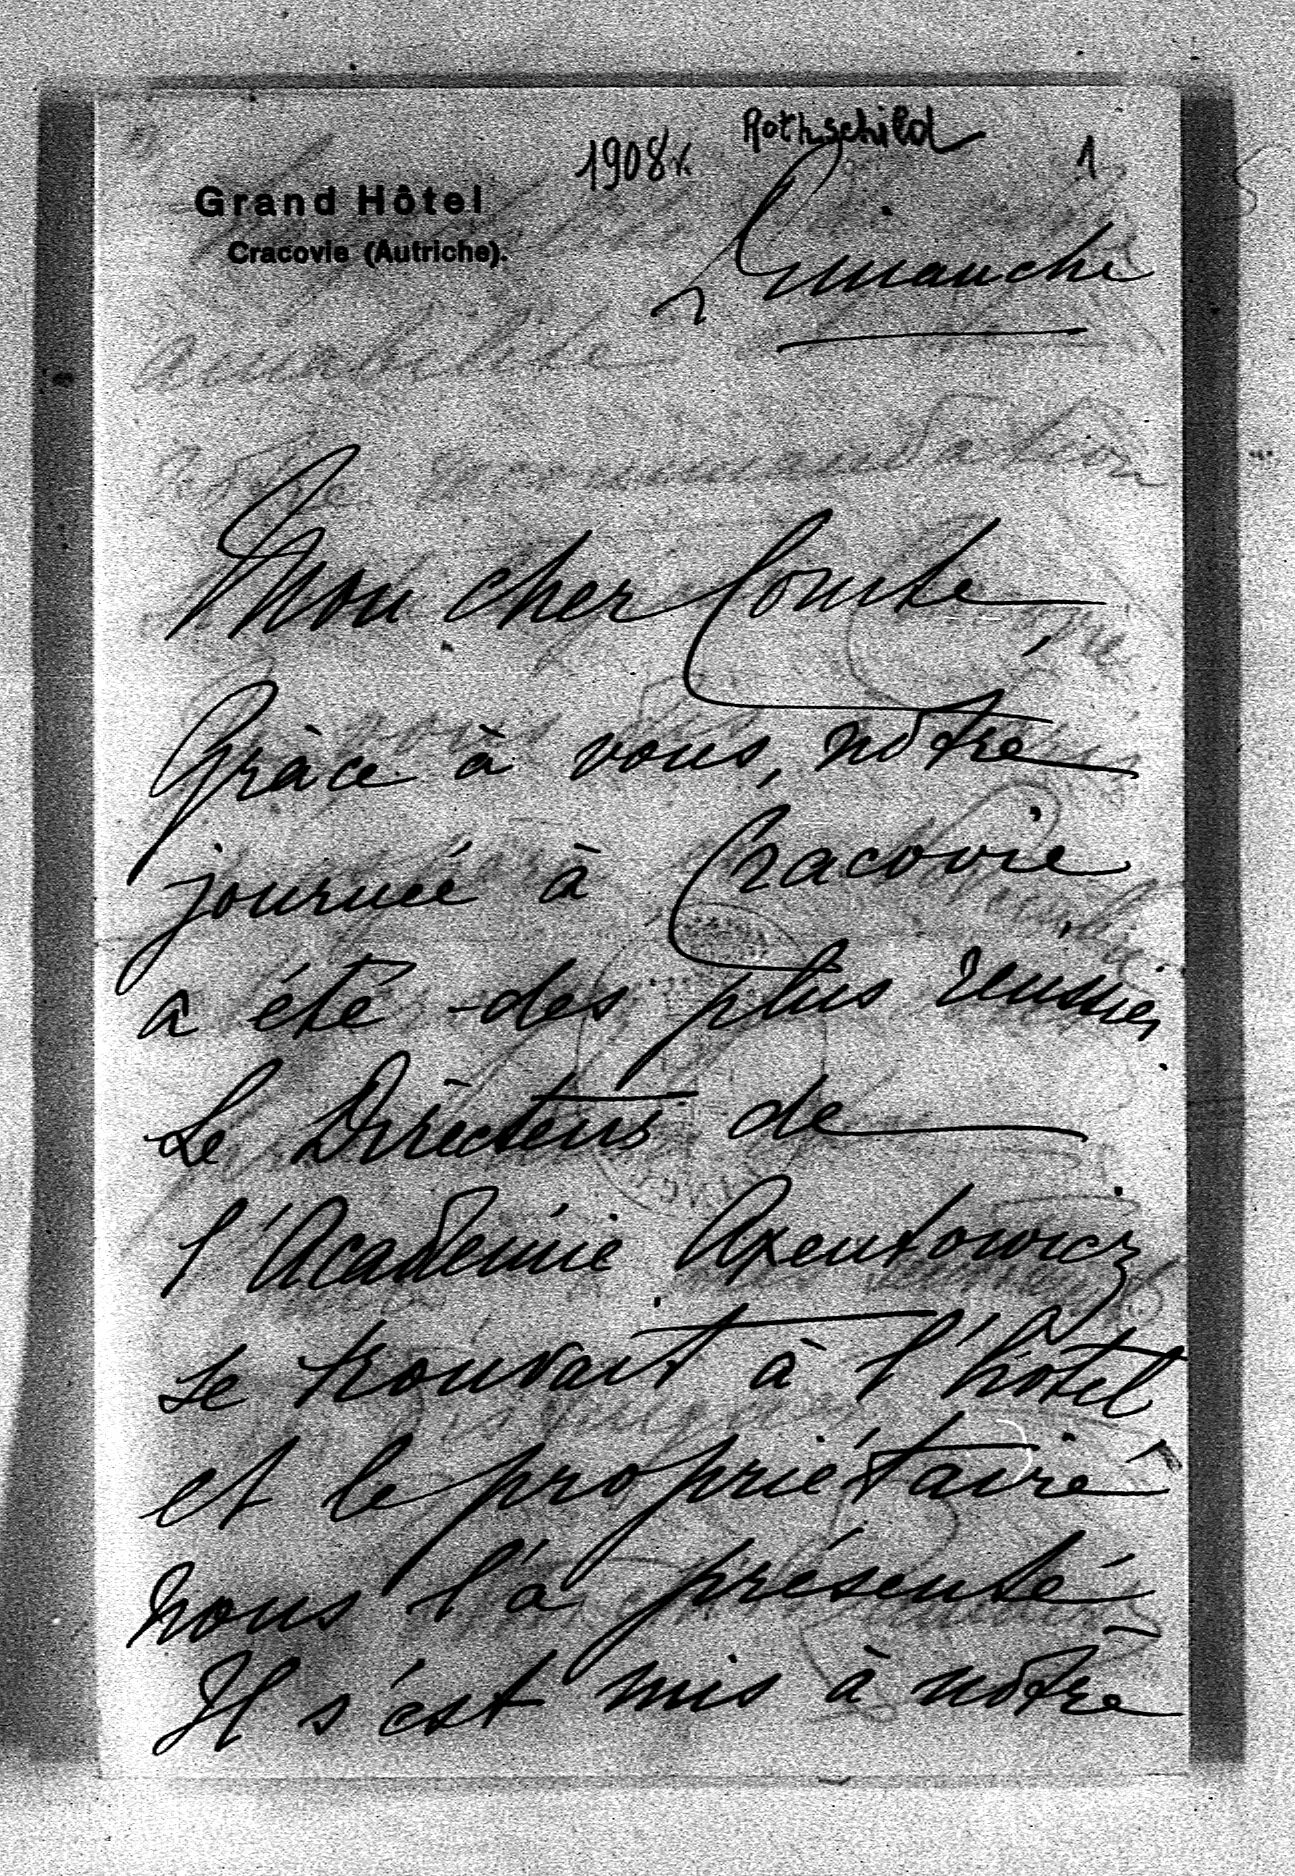 1908r. Rothschild 1
Grand Hôtel
Cracovie (Autriche).
Dimanche
Mon cher Comte,
Grâce à vous, nôtre
journée à Cracovie
a été des plus réussies,
Le Directeur de
l'Académie Axentowicz
se trouvait à l'hôtel
et le propriétaire
nous l'a présenté
Il s'est mis à nôtre